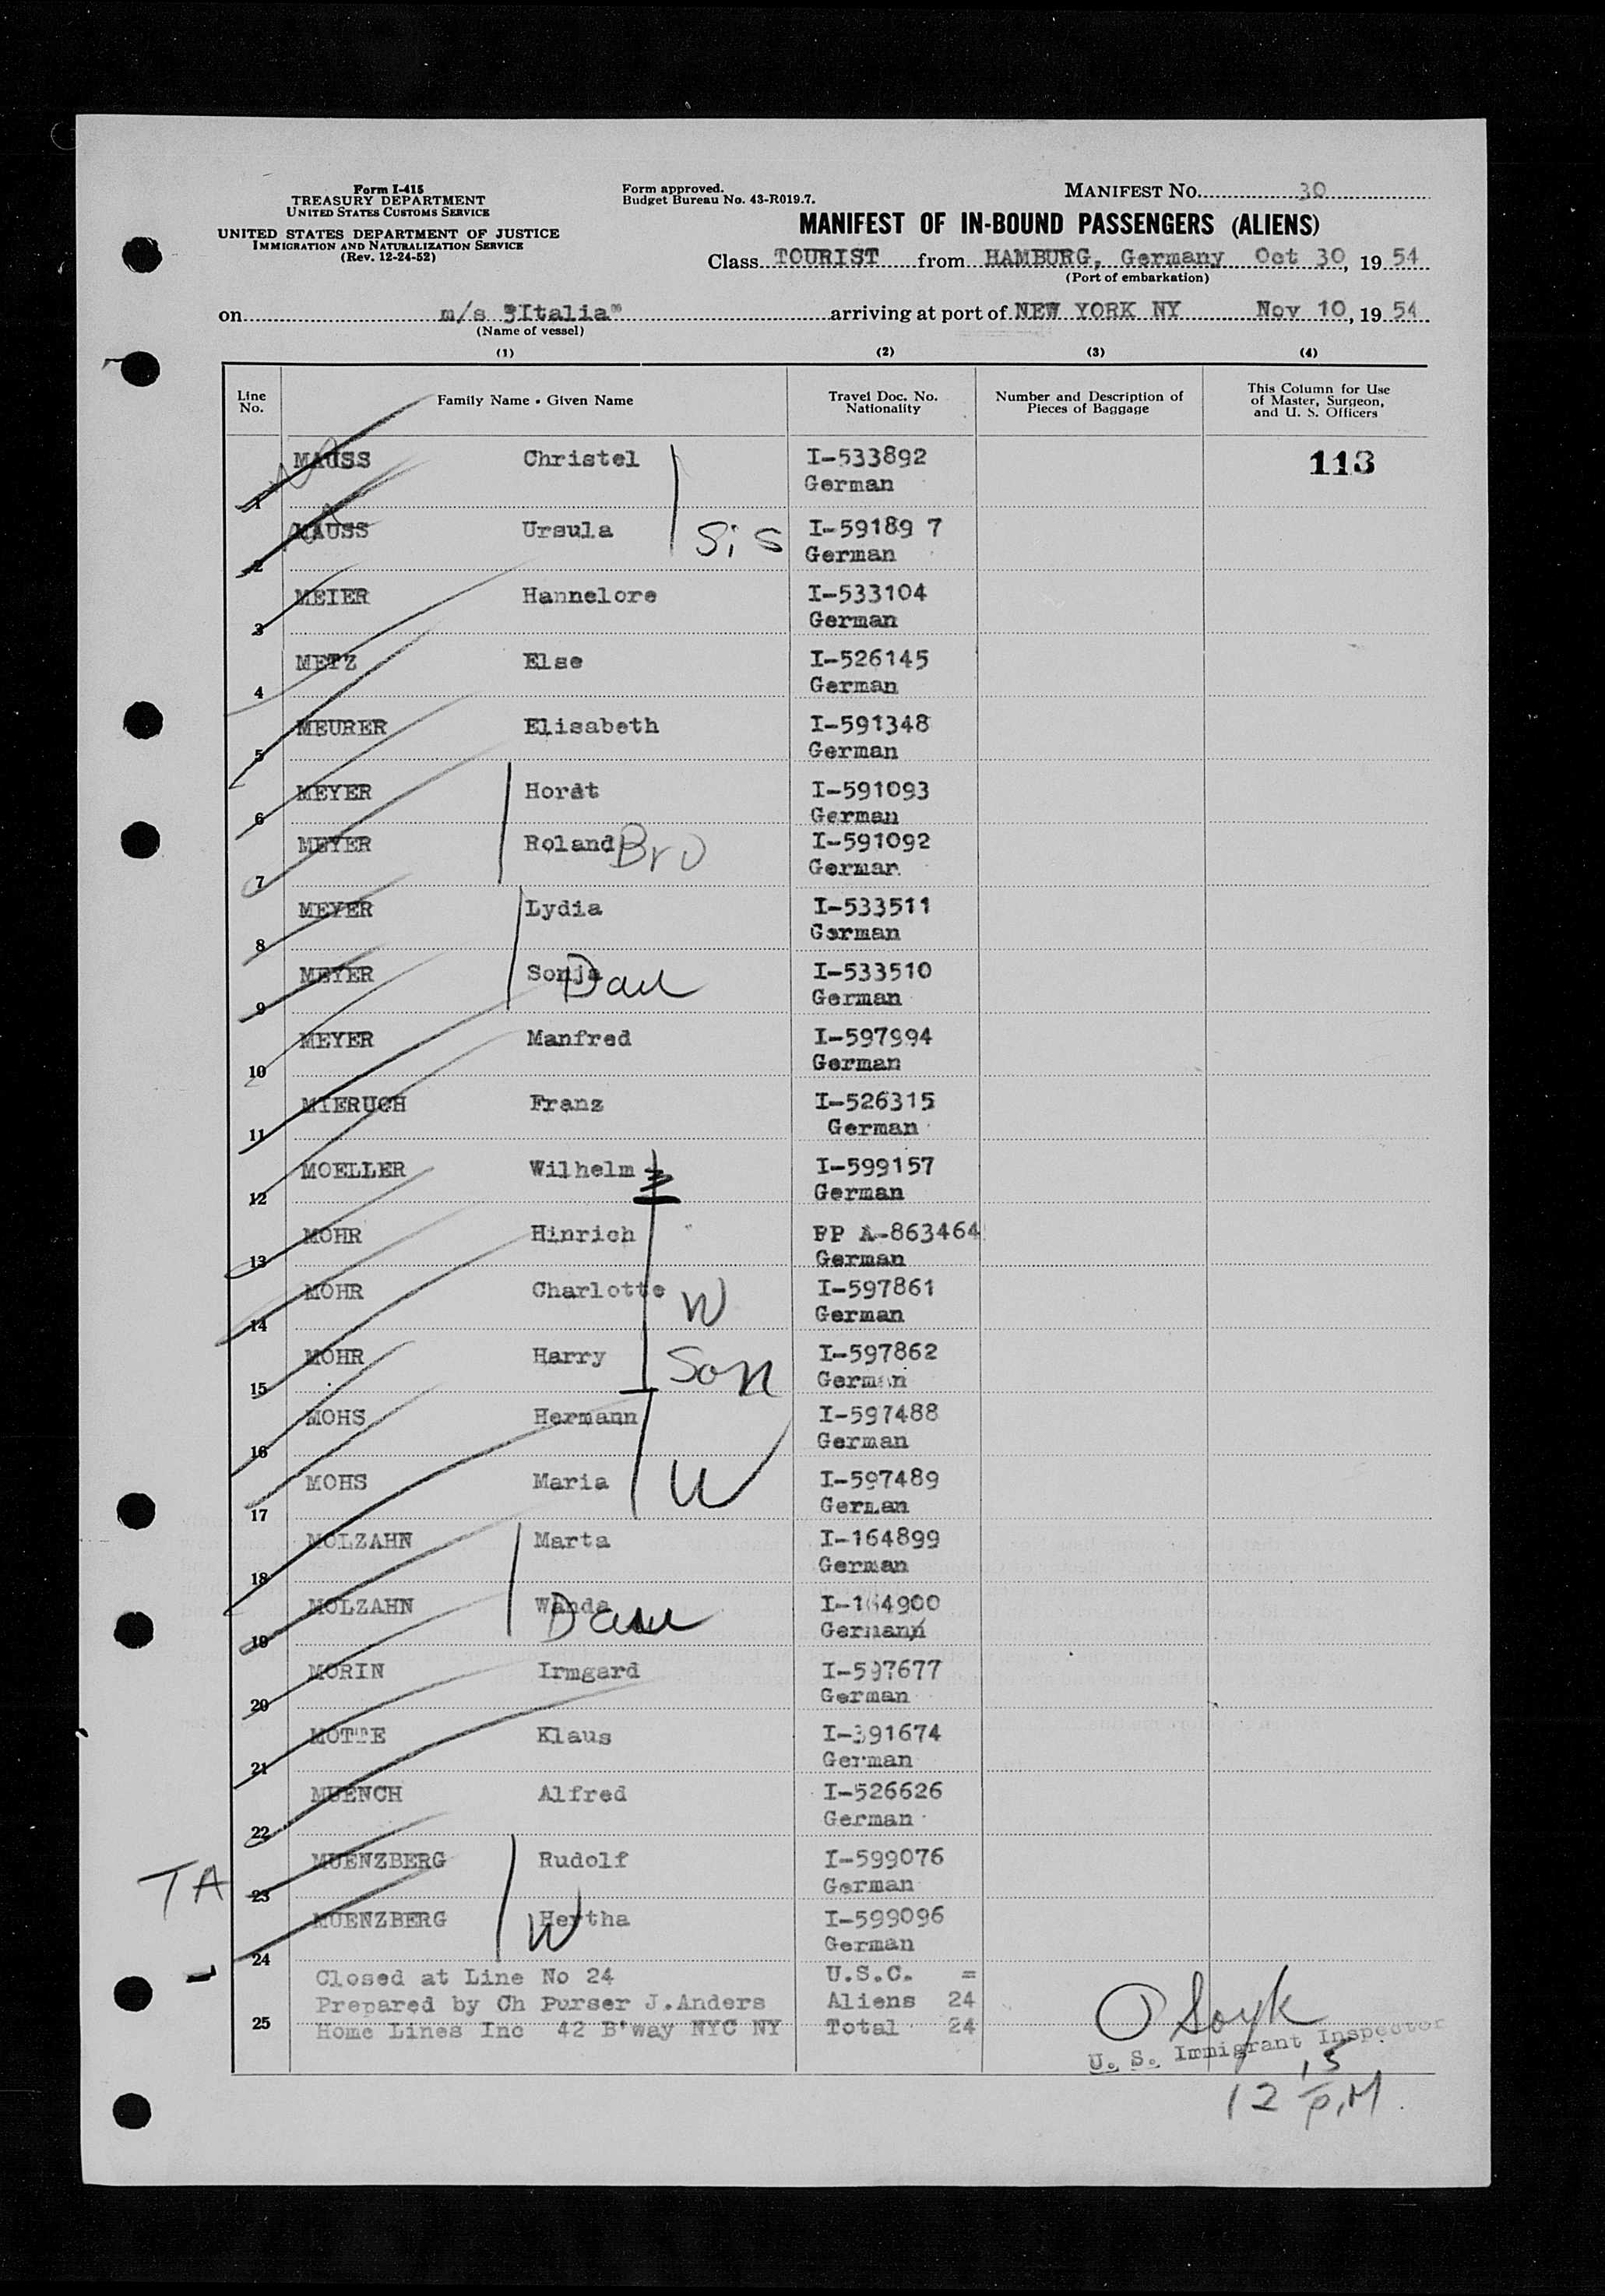 Form I-415
TREASURY DEPARTMENT
UNITED STATES CUSTOMS SERVICE
UNITED STATES DEPARTMENT OF JUSTICE
IMMIGRATION AND NATURALIZATION SERVICE
(Rev. 12-24-52)
Form approved.
Budget Bureau No. 43-R019.7.
MANIFEST NO. 30
MANIFEST OF IN-BOUND PASSENGERS (ALIENS)
Class TOURIST from HAMBURG, Germany Oct 30, 19 54
(Port of embarkation)
on m/s "Italia" arriving at port of NEW YORK NY Nov 10, 19 54
(Name of vessel)
(1) (2) (3) (4)
Line No. Family Name - Given Name Travel Doc. No. Nationality Number and Description of Pieces of Baggage This Column for Use of Master, Surgeon, and U. S. Officers
1 MAUSS Christel I-533892 113
German
2 MAUSS Ursula Sis I-59189 7
German
3 MEIER Hannelore I-533104
German
4 METZ Else I-526145
German
5 MEURER Elisabeth I-591348
German
6 MEYER Horst I-591093
German
7 MEYER Roland Bro I-591092
German
8 MEYER Lydia I-533511
German
9 MEYER Sonja Dau I-533510
German
10 MEYER Manfred I-597994
German
11 MIERUCH Franz I-526315
German
12 MOELLER Wilhelm I-599157
German
13 MOHR Hinrich PP A-863464
German
14 MOHR Charlotte W I-597861
German
15 MOHR Harry Son I-597862
German
16 MOHS Hermann I-597488
German
17 MOHS Maria W I-597489
German
18 MOLZAHN Marta I-164899
German
19 MOLZAHN Wanda Dau I-164900
Germann
20 MORIN Irmgard I-597677
German
21 MOTTE Klaus I-391674
German
22 MUENCH Alfred I-526626
German
TA 23 MUENZBERG Rudolf I-599076
German
24 MUENZBERG Hertha W I-599096
German
Closed at Line No 24 U.S.C. =
Prepared by Ch Purser J.Anders Aliens 24
25 Home Lines Inc 42 B'way NYC NY Total 24
U. S. Immigrant Inspector
12 15 P.M.